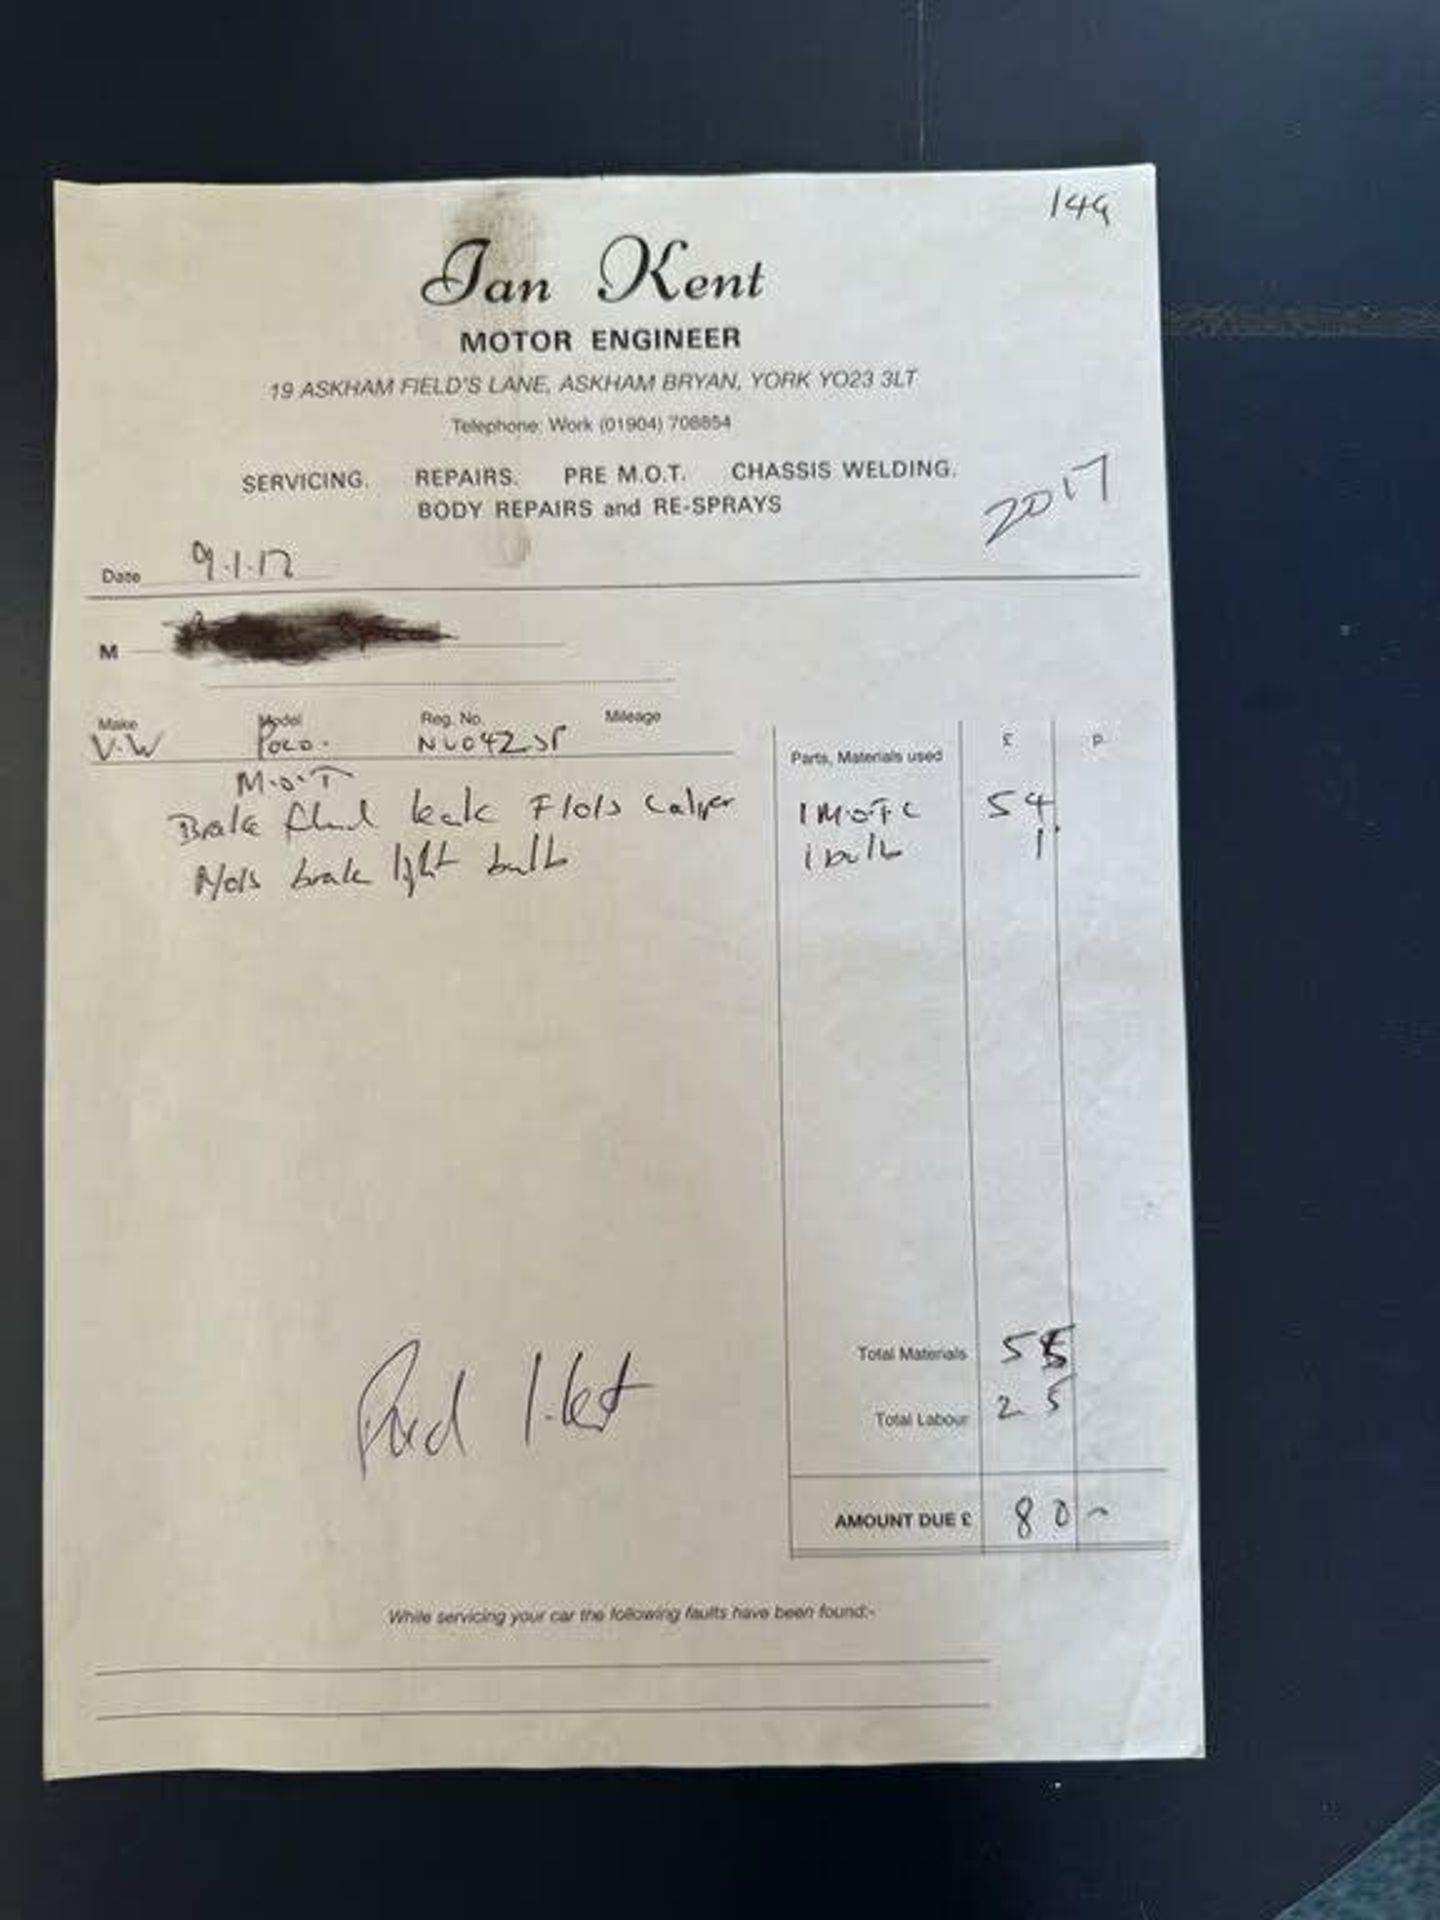 149
Ian Kent
MOTOR ENGINEER
19 ASKHAM FIELD'S LANE, ASKHAM BRYAN, YORK YO23 3LT
Telephone: Work (01904) 708854
SERVICING. REPAIRS. PRE M.O.T. CHASSIS WELDING.
BODY REPAIRS and RE-SPRAYS
2017
Date 9.1.17
M
Make Model Reg. No. Mileage
V.W Polo.
Parts, Materials used £ p
M.O.T
Brake fluid leak F/o/s caliper
N/o/s brake light bulb
1 M.O.T.C 54
1 bulb 1
Total Materials 55
Total Labour 25
Paid
AMOUNT DUE £ 80 -
While servicing your car the following faults have been found:-